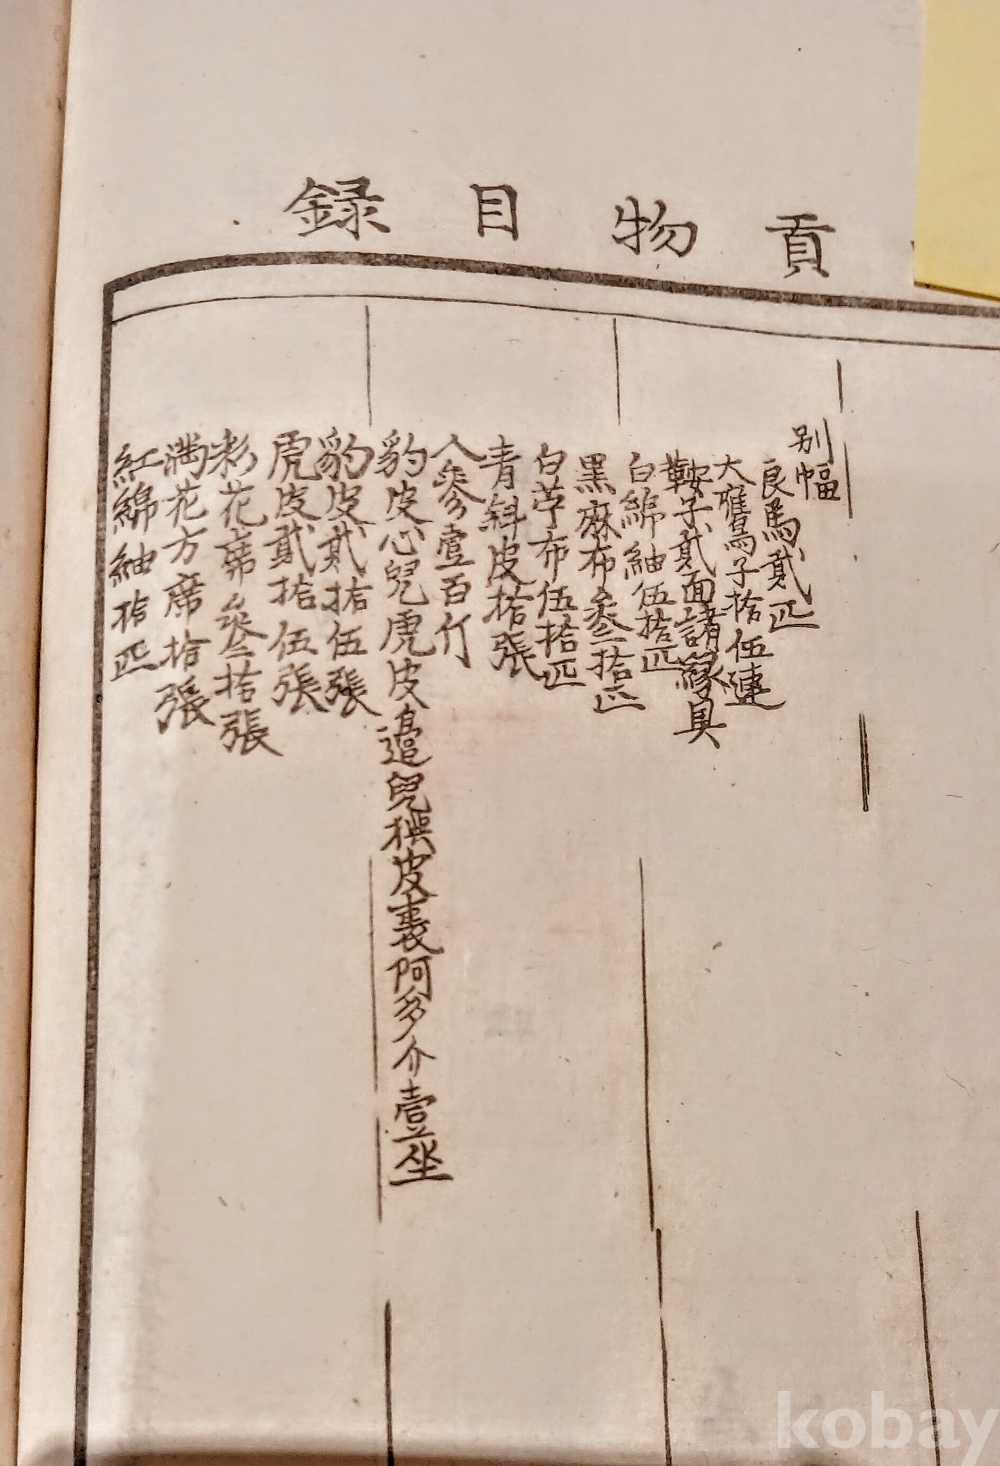 貢物目録
別幅
良馬貳匹
大鷹子拾伍連
鞍子貳面諸縁具
白綿紬伍拾匹
黒麻布參拾匹
白苧布伍拾匹
青斜皮拾張
人參壹百斤
豹皮心兒虎皮邊兒猠皮裏阿多介壹坐
豹皮貳拾伍張
虎皮貳拾伍張
彩花席參拾張
満花方席拾張
紅綿紬拾匹
kobay